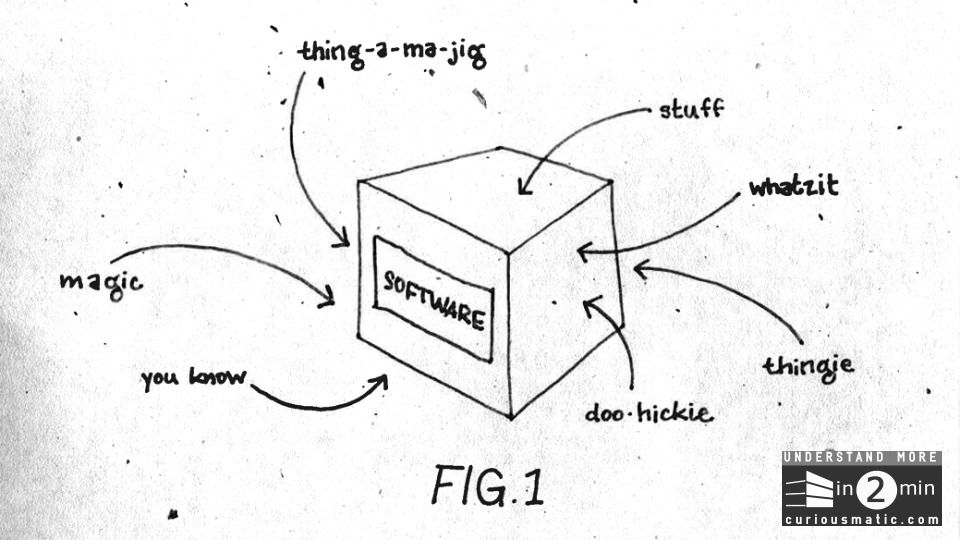 thing-a-ma-jig
stuff
whatzit
magic
SOFTWARE
thingie
you know
doo-hickie
FIG.1
UNDERSTAND MORE
in 2 min
curiousmatic.com